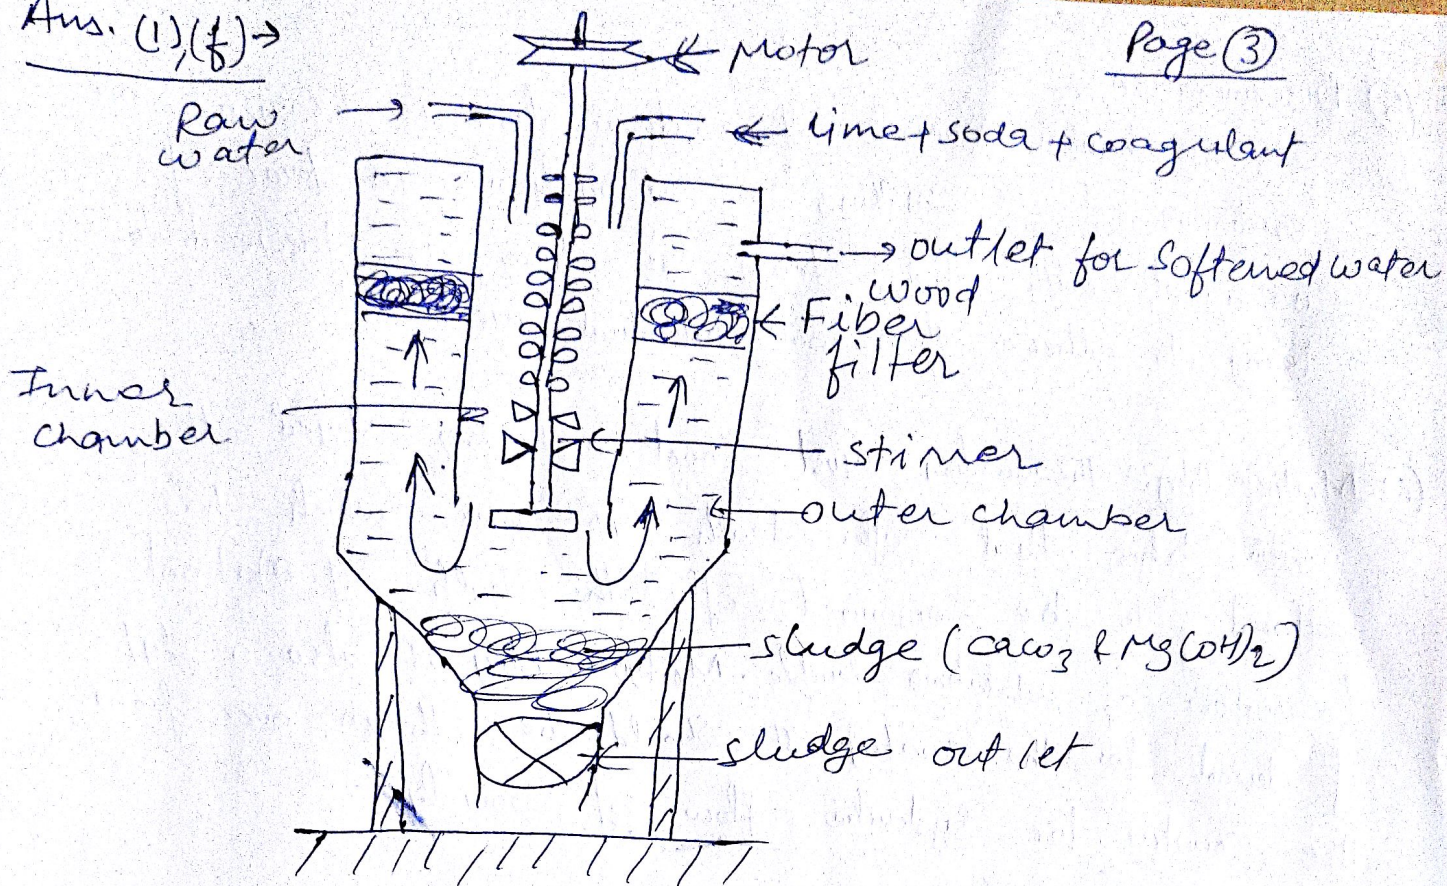 Ans. (1),(f)→
Page ③
Motor
Raw
water
lime + soda + coagulant
→ outlet for softened water
wood
Fiber
filter
Inner
chamber
stirrer
outer chamber
sludge (CaCO3 & Mg(OH)2)
sludge outlet